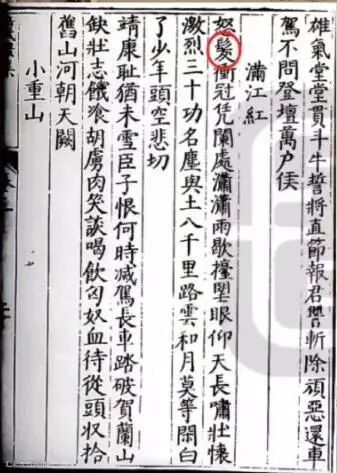 雄氣堂堂貫斗牛誓將直節報君讐斬除頑惡還車
駕不問登壇萬户侯
滿江紅
怒髮衝冠凭闌處瀟瀟雨歇擡朢眼仰天長嘯壯懷
激烈三十功名塵與土八千里路雲和月莫等閑白
了少年頭空悲切
靖康耻猶未雪臣子恨何時减駕長車踏破賀蘭山
缺壯志餓飡胡虜肉笑談喝飲匈奴血待從頭收拾
舊山河朝天闕
小重山